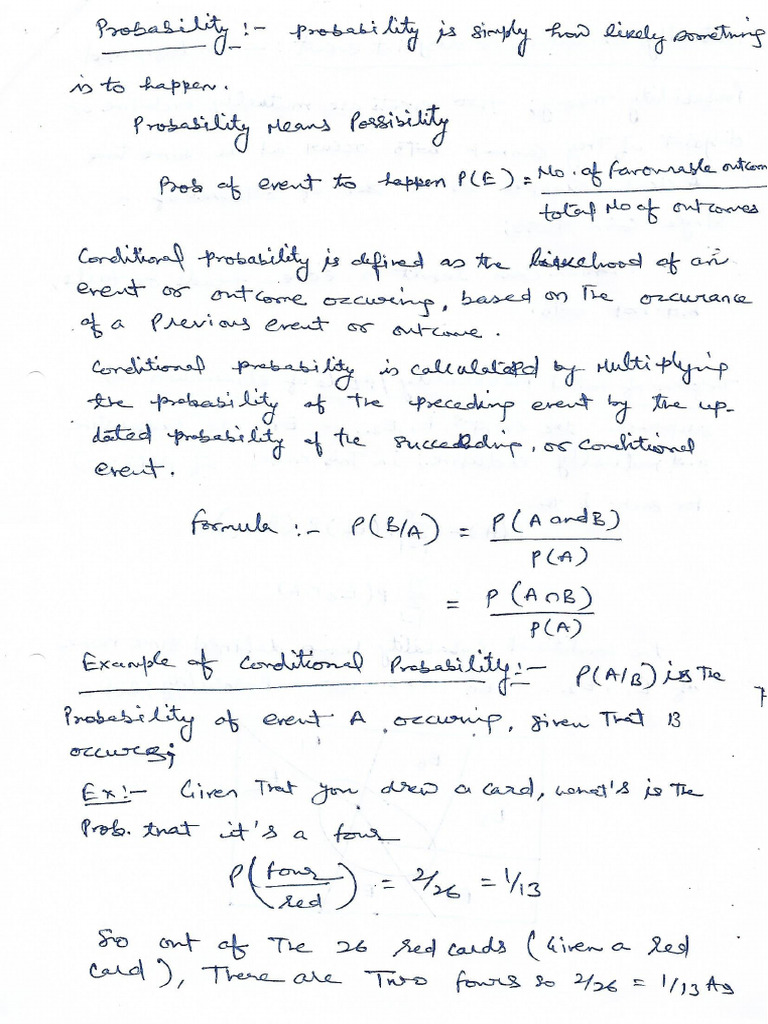 Probability :- Probability is simply how likely something
is to happen.
Probability Means Possibility
Prob of event to happen P(E) = No. of favourable outcom
total No of outcomes
Conditional probability is defined as the likelihood of an
event or outcome occuring, based on the occurance
of a Previous event or outcome.
Conditional probability is calculated by multiplying
the probability of the preceding event by the up-
dated probability of the succeeding, or conditional
event.
formula :- P(B/A) = P(A and B)
P(A)
= P(A∩B)
P(A)
Example of Conditional Probability :- P(A/B) is the
Probability of event A occuring, given that B
occurs;
Ex :- Given that you drew a card, what's is the
Prob. that it's a four
P(four/red) = 2/26 = 1/13
So out of the 26 red cards (Given a red
card), There are Two fours so 2/26 = 1/13 As